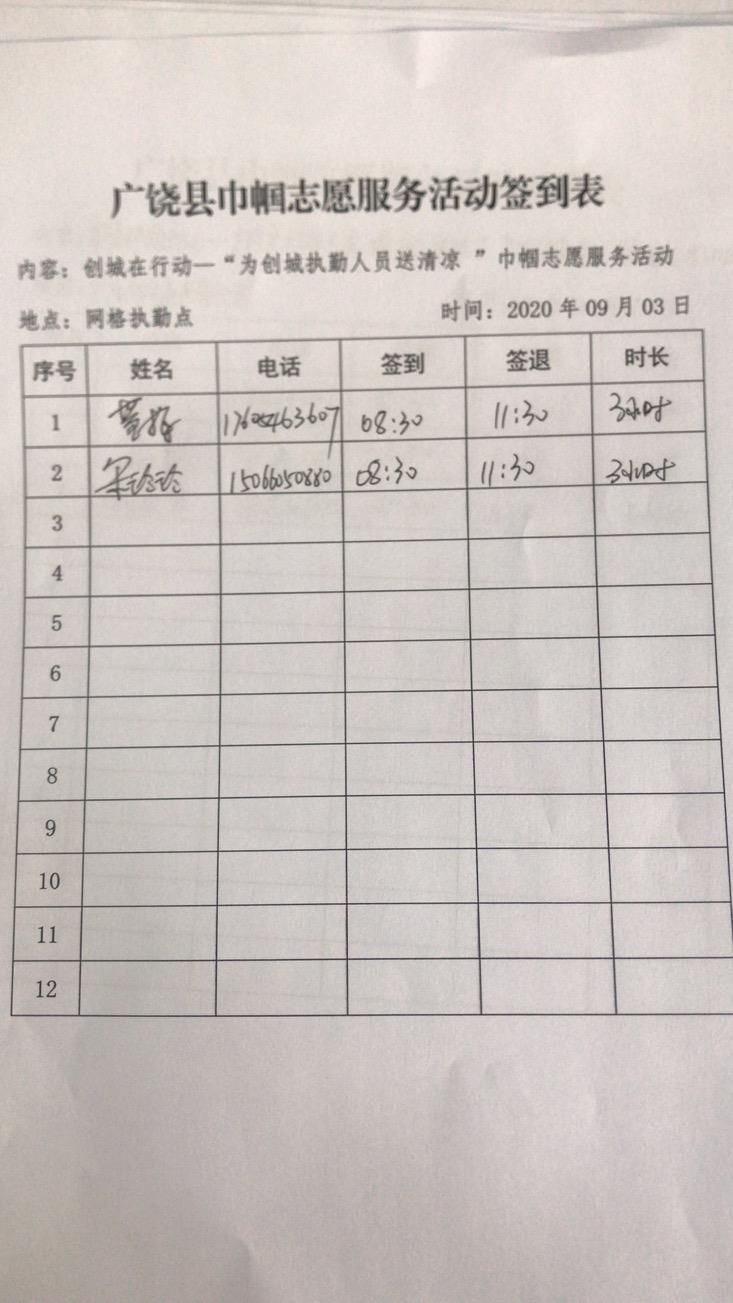 广饶县巾帼志愿服务活动签到表
内容：创城在行动—“为创城执勤人员送清凉 ”巾帼志愿服务活动
地点：网格执勤点 时间：2020 年 09 月 03 日
序号 姓名 电话 签到 签退 时长
1 08:30 11:30 3小时
2 15066050880 08:30 11:30 3小时
3
4
5
6
7
8
9
10
11
12